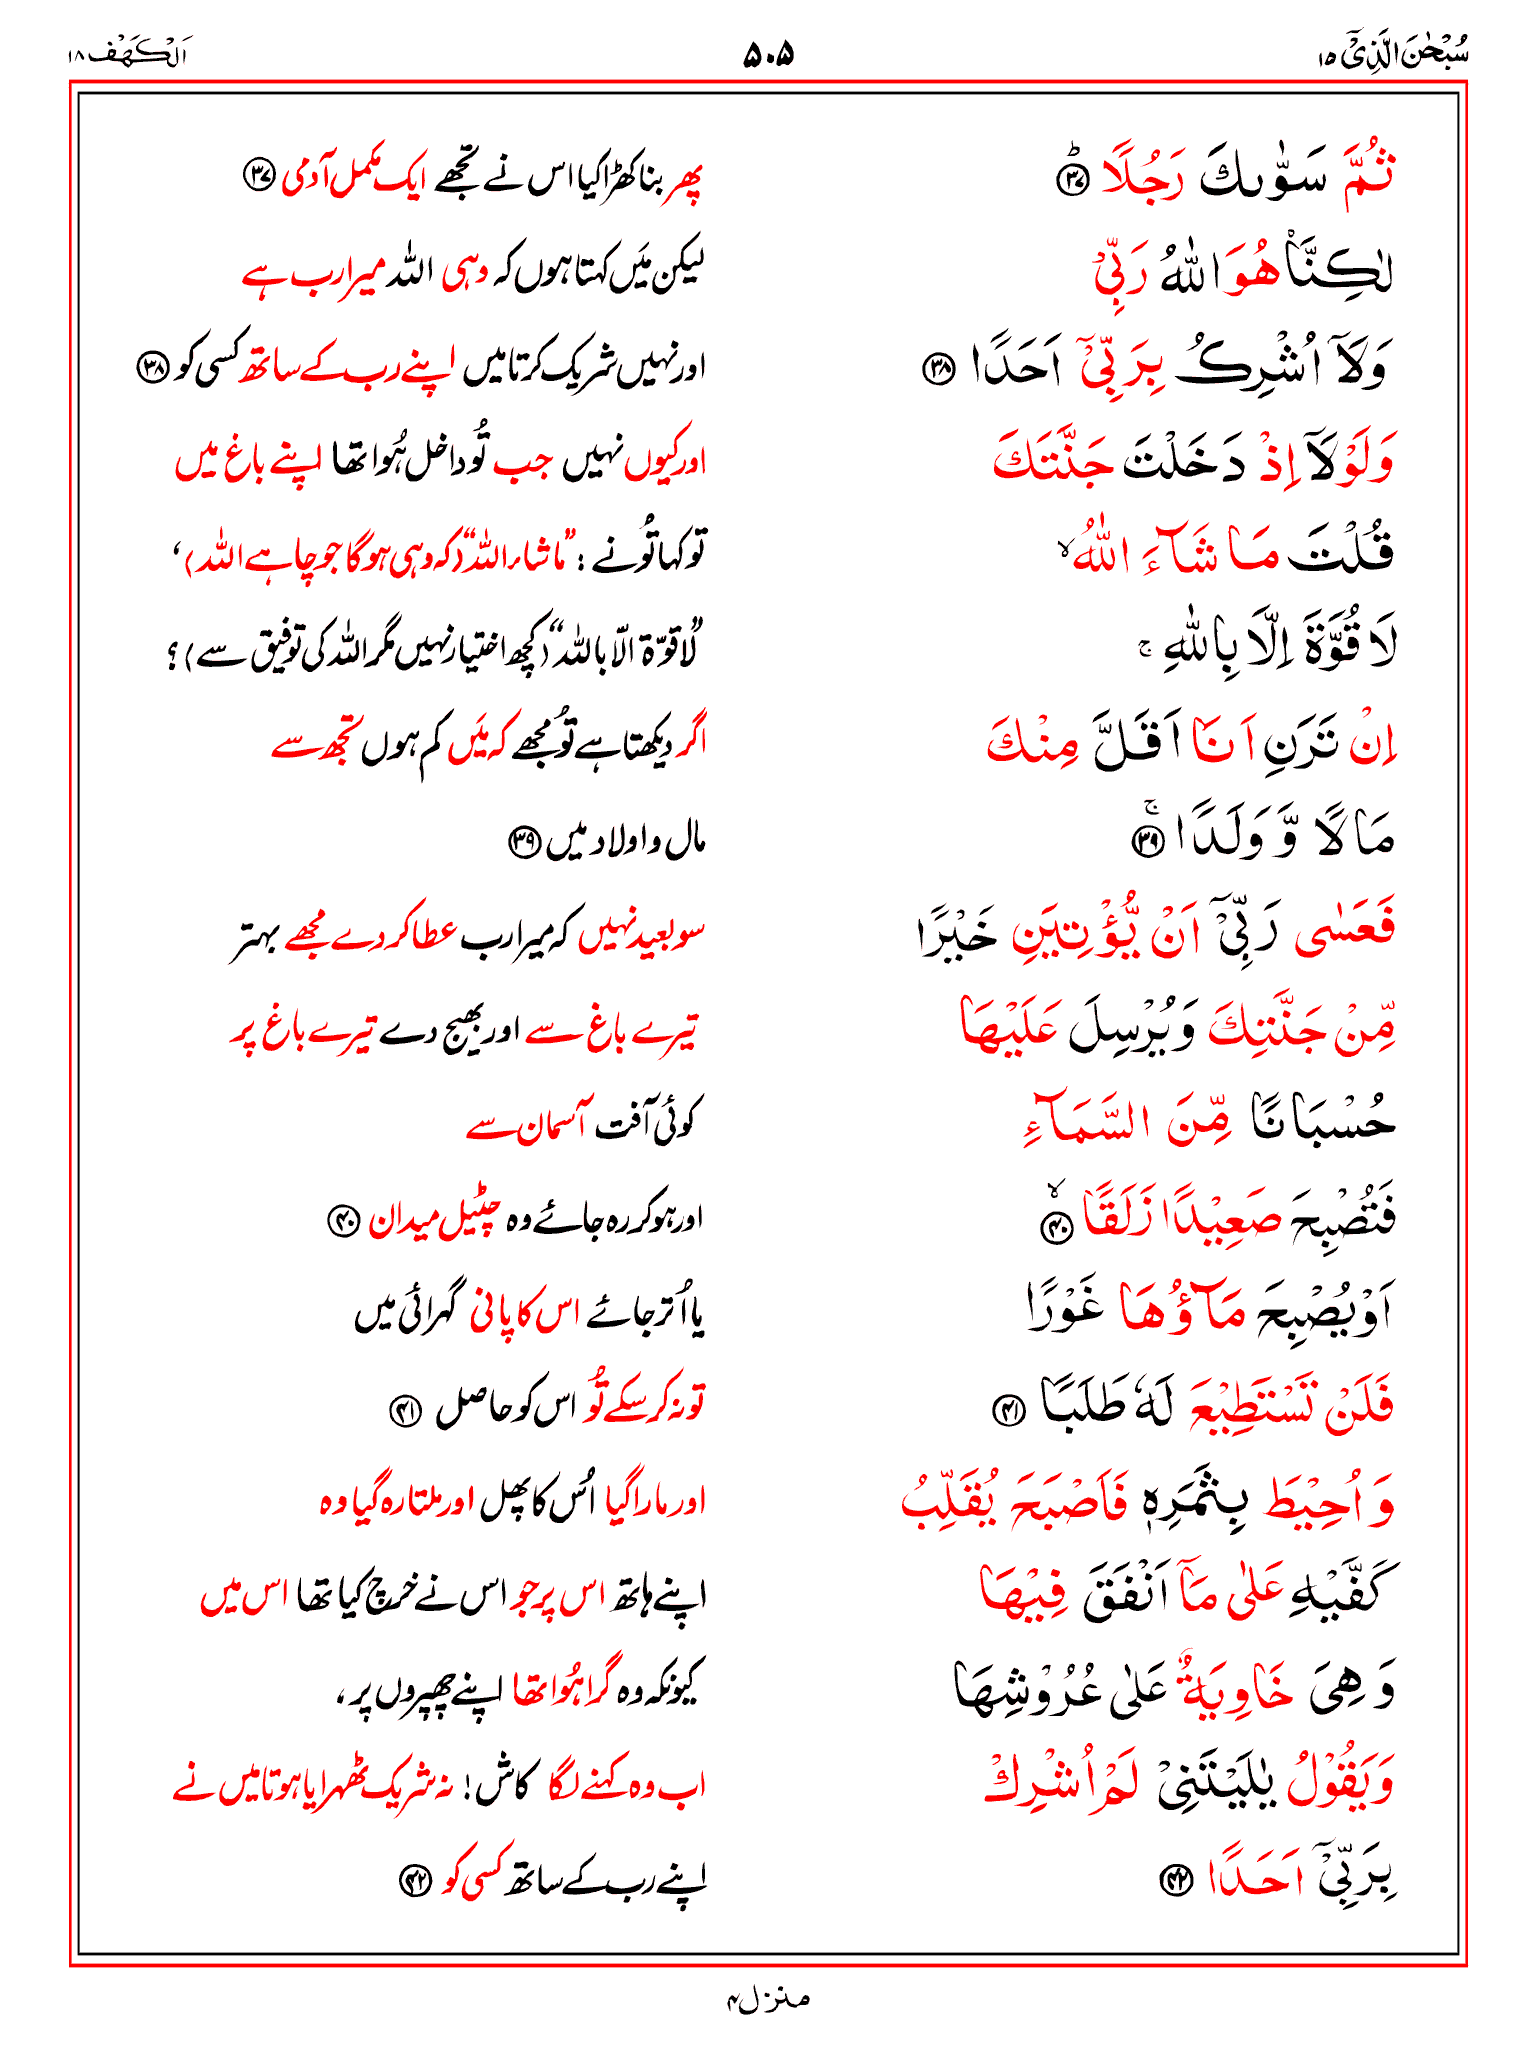 سُبْحٰنَ الَّذِیْۤ ۱۵
۵۰۵
اَلْکَهْف ۱۸
ثُمَّ سَوّٰىكَ رَجُلًا ؕ﴿۳۷﴾
پھر بنا کھڑا کیا اس نے تجھے ایک مکمل آدمی ﴿۳۷﴾
لٰكِنَّا۠ هُوَ اللّٰهُ رَبِّیْ
لیکن مَیں کہتا ہوں کہ وہی اللہ میرا رب ہے
وَ لَاۤ اُشْرِكُ بِرَبِّیْۤ اَحَدًا ﴿۳۸﴾
اور نہیں شریک کرتا میں اپنے رب کے ساتھ کسی کو ﴿۳۸﴾
وَ لَوْ لَاۤ اِذْ دَخَلْتَ جَنَّتَكَ
اور کیوں نہیں جب تُو داخل ہُوا تھا اپنے باغ میں
قُلْتَ مَا شَآءَ اللّٰهُ ۙ
تو کہا تُو نے : ”ما شاء اللہ“ (کہ وہی ہوگا جو چاہے اللہ)،
لَا قُوَّةَ اِلَّا بِاللّٰهِ ۚ
”لا قوّۃ الّا باللہ“ (کچھ اختیار نہیں مگر اللہ کی توفیق سے)؟
اِنْ تَرَنِ اَنَا اَقَلَّ مِنْكَ
اگر دیکھتا ہے تُو مجھے کہ مَیں کم ہوں تجھ سے
مَالًا وَّ وَلَدًا ۚ﴿۳۹﴾
مال و اولاد میں ﴿۳۹﴾
فَعَسٰی رَبِّیْۤ اَنْ یُّؤْتِیَنِ خَیْرًا
سو بعید نہیں کہ میرا رب عطا کر دے مجھے بہتر
مِّنْ جَنَّتِكَ وَ یُرْسِلَ عَلَیْهَا
تیرے باغ سے اور بھیج دے تیرے باغ پر
حُسْبَانًا مِّنَ السَّمَآءِ
کوئی آفت آسمان سے
فَتُصْبِحَ صَعِیْدًا زَلَقًا ۙ﴿۴۰﴾
اور ہو کر رہ جائے وہ چٹیل میدان ﴿۴۰﴾
اَوْ یُصْبِحَ مَآؤُهَا غَوْرًا
یا اُتر جائے اس کا پانی گہرائی میں
فَلَنْ تَسْتَطِیْعَ لَهٗ طَلَبًا ﴿۴۱﴾
تو نہ کر سکے تُو اس کو حاصل ﴿۴۱﴾
وَ اُحِیْطَ بِثَمَرِهٖ فَاَصْبَحَ یُقَلِّبُ
اور مارا گیا اُس کا پھل اور ملتا رہ گیا وہ
كَفَّیْهِ عَلٰی مَاۤ اَنْفَقَ فِیْهَا
اپنے ہاتھ اس پر جو اس نے خرچ کیا تھا اس میں
وَ هِیَ خَاوِیَةٌ عَلٰی عُرُوْشِهَا
کیونکہ وہ گرا ہُوا تھا اپنے چھپروں پر ،
وَ یَقُوْلُ یٰلَیْتَنِیْ لَمْ اُشْرِكْ
اب وہ کہنے لگا کاش! نہ شریک ٹھہرایا ہوتا میں نے
بِرَبِّیْۤ اَحَدًا ﴿۴۲﴾
اپنے رب کے ساتھ کسی کو ﴿۴۲﴾
منزل ۴